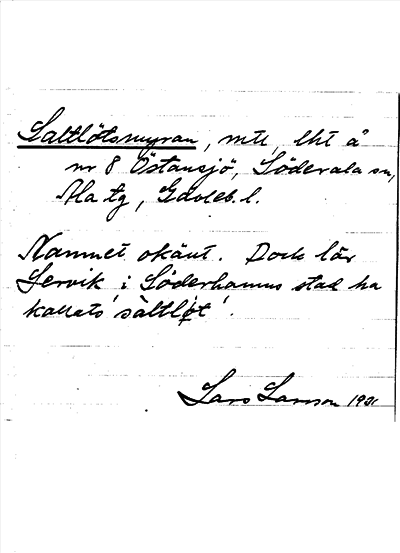 Saltlötsmyran, mtl, lht å
nr 8 Östansjö, Söderala sn,
Ala tg, Gävleb. l.
Namnet okänt. Dock lär
Servik i Söderhamns stad ha
kallats 'saltløt'.
Lars Larsson 1931